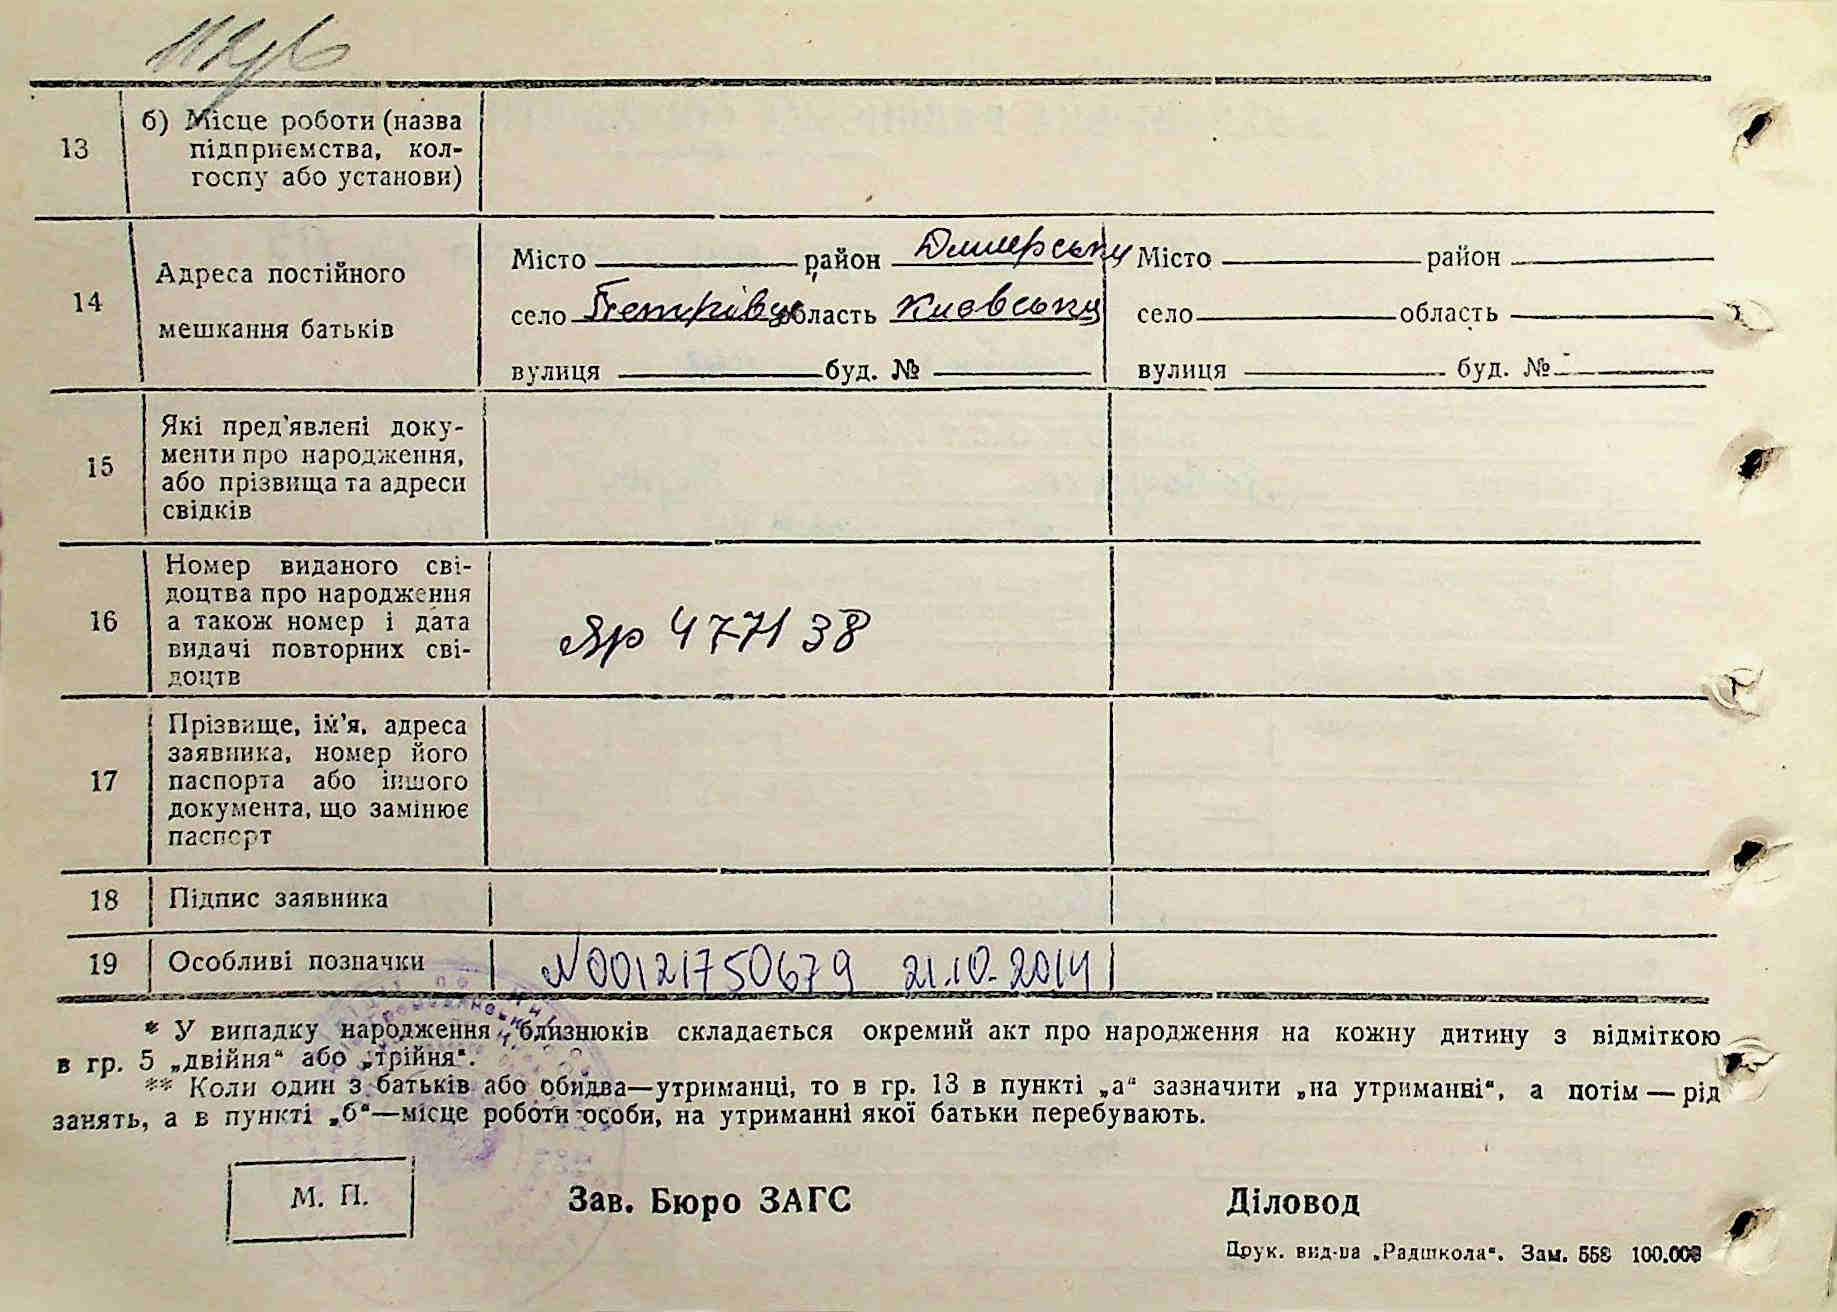 13 б) Місце роботи (назва
підприємства, кол-
госпу або установи)
14 Адреса постійного
мешкання батьків
Місто район Димерський
село Петрівці область Київська
вулиця буд. №
Місто район
село область
вулиця буд. №
15 Які пред'явлені доку-
менти про народження,
або прізвища та адреси
свідків
16 Номер виданого сві-
доцтва про народження
а також номер і дата
видачі повторних сві-
доцтв
Яр 477138
17 Прізвище, ім'я, адреса
заявника, номер його
паспорта або іншого
документа, що замінює
паспорт
18 Підпис заявника
19 Особливі позначки N00121750679 21.10.2014
* У випадку народження близнюків складається окремий акт про народження на кожну дитину з відміткою
в гр. 5 „двійня“ або „трійня“.
** Коли один з батьків або обидва—утриманці, то в гр. 13 в пункті „а“ зазначити „на утриманні“, а потім — рід
занять, а в пункті „б“—місце роботи особи, на утриманні якої батьки перебувають.
М. П. Зав. Бюро ЗАГС Діловод
Друк. вид-ва „Радшкола“. Зам. 558 100.000